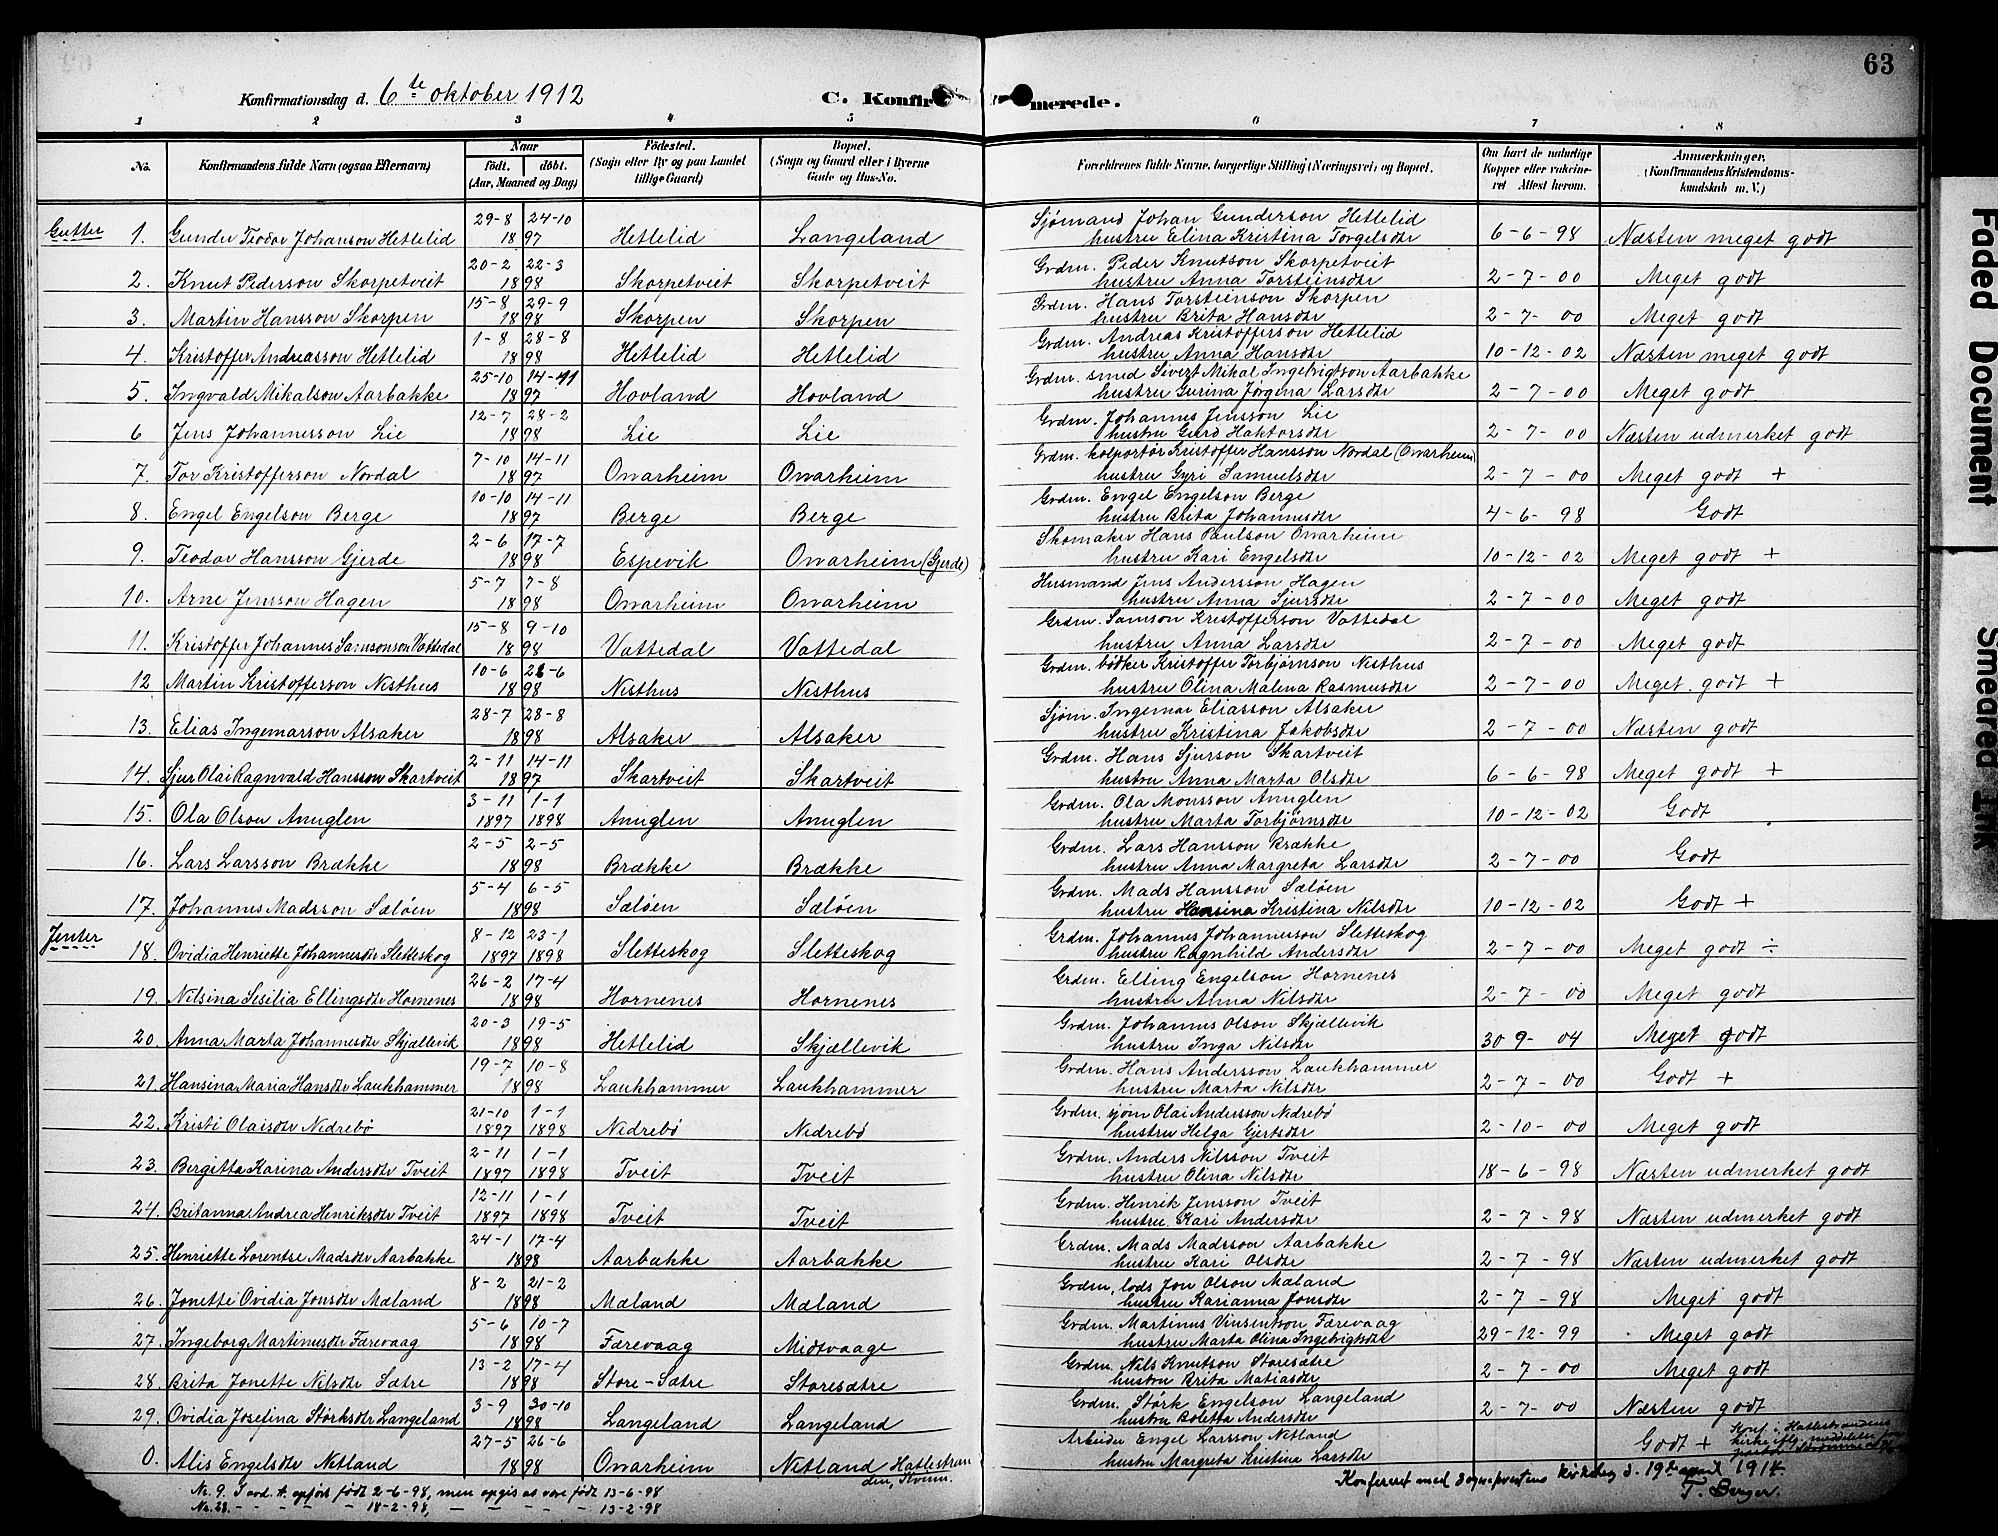 63
Konfirmationsdag d. 6te oktober 1912 C. Konfirmerede.
1 2 3 4 5 6 7 8
No. Konfirmandens fulde Navn (ogsaa Efternavn) Naar født. døbt. (Aar, Maaned og Dag) Fødested. (Sogn eller By og paa Landet tillige Gaard) Bopæl. (Sogn og Gaard eller i Byerne Gade og Hus-No. Forældrenes fulde Navne, borgerlige Stilling (Næringsvei) og Bopæl. Om havt de naturlige Kopper eller vakcineret Attest herom. Anmærkninger. (Konfirmandens Kristendomskundskab m. V.)
Gutter 1. Gunder Teodor Johanson Hettelid 29-8 24-10 1897 Hettelid Langeland Sjømand Johan Gunderson Hettelid hustru Elina Kristina Torgelsdtr 6-6-98 Næsten meget godt
2. Knut Pederson Skorpetveit 20-2 22-3 1898 Skorpetveit Skorpetveit Grdm. Peder Knutson Skorpetveit hustru Anna Torsteinsdtr 2-7-00 Meget godt
3. Martin Hansson Skorpen 15-8 29-9 1898 Skorpen Skorpen Grdm. Hans Torsteinson Skorpen hustru Brita Hansdtr 2-7-00 Meget godt
4. Kristoffer Andreasson Hettelid 1-8 28-8 1898 Hettelid Hettelid Grdm. Andreas Kristofferson Hettelid hustru Anna Hansdtr 10-12-02 Næsten meget godt
5. Ingvald Mikalson Aarbakke 25-10 14-11 1897 Hovland Hovland Grdm. smed Sivert Mikal Ingebrigtson Aarbakke hustru Gurina Jørgina Larsdtr 2-7-00 Meget godt
6 Jens Johannesson Lie 12-7 28-2 1898 Lie Lie Grdm. Johannes Jensson Lie hustru Gurd Haktorsdtr 2-7-00 Næsten udmerket godt
7. Tor Kristofferson Nordal 7-10 14-11 1897 Onarheim Onarheim Grdm. kolportør Kristoffer Hansson Nordal (Onarheim) hustru Gyri Samuelsdtr 2-7-00 Meget godt +
8. Engel Engelson Berge 10-10 14-11 1897 Berge Berge Grdm. Engel Engelson Berge hustru Brita Johannesdtr 4-6-98 Godt
9. Teodor Hansson Gjerde 2-6 17-7 1898 Espevik Onarheim (Gjerde) Skomaker Hans Paulson Onarheim hustru Kari Engelsdtr 10-12-02 Meget godt +
10. Arne Jensson Hagen 5-7 7-8 1898 Onarheim Onarheim Husmand Jens Andersson Hagen hustru Anna Sjursdtr 2-7-00 Meget godt
11. Kristoffer Johannes Samsonson Vattedal 15-8 9-10 1898 Vattedal Vattedal Grdm. Samson Kristofferson Vattedal hustru Anna Larsdtr 2-7-00 Meget godt
12 Martin Kristofferson Nesthus 10-6 26-6 1898 Nesthus Nesthus Grdm. bødker Kristoffer Torbjørnson Nesthus hustru Olina Malena Rasmusdtr 2-7-00 Meget godt +
13. Elias Ingemarson Alsaker 28-7 28-8 1898 Alsaker Alsaker Sjøm. Ingemar Eliasson Alsaker hustru Kristina Jakobsdtr 2-7-00 Næsten godt
14. Sjur Olai Ragnvald Hansson Skartveit 2-11 14-11 1897 Skartveit Skartveit Grdm. Hans Sjurson Skartveit hustru Anna Marta Olsdtr 6-6-98 Meget godt +
15. Ola Olson Anuglen 3-11 1-1 1897 1898 Anuglen Anuglen Grdm. Ola Monsson Anuglen hustru Marta Torbjørnsdtr 10-12-02 Godt
16. Lars Larsson Brække 2-5 2-5 1898 Brække Brække Grdm. Lars Hansson Brække hustru Anna Margreta Larsdtr 2-7-00 Godt
17. Johannes Madsson Sæløen 5-4 6-5 1898 Sæløen Sæløen Grdm. Mads Hansson Sæløen hustru Hansina Kristina Nilsdtr 10-12-02 Godt +
Jenter 18. Ovidia Henriette Johannesdtr Sletteskog 8-12 23-1 1897 1898 Sletteskog Sletteskog Grdm. Johannes Johannesson Sletteskog hustru Ragnhild Andersdtr 2-7-00 Meget godt ÷
19. Nilsina Sesilia Ellingsdtr Hornenes 26-2 17-4 1898 Hornenes Hornenes Grdm. Elling Engelson Hornenes hustru Anna Nilsdtr 2-7-00 Meget godt
20. Anna Marta Johannesdtr Skjællevik 20-3 19-5 1898 Hettelid Skjællevik Grdm. Johannes Olson Skjællevik hustru Inga Nilsdtr 30 9-04 Meget godt
21. Hansina Maria Hansdtr Laukhammer 19-7 10-8 1898 Laukhammer Laukhammer Grdm. Hans Andersson Laukhammer hustru Marta Nilsdtr 2-7-00 Godt +
22. Kristi Olaisdtr Nedrebø 21-10 1-1 1897 1898 Nedrebø Nedrebø Grdm. sjøm Olai Andersson Nedrebø hustru Helga Gjertsdtr 2-10-00 Meget godt
23. Bergitta Karina Andersdtr Tveit 2-11 1-1 1897 1898 Tveit Tveit Grdm. Anders Nilsson Tveit hustru Olina Nilsdtr 18-6-98 Næsten udmerket godt
24. Britanna Andrea Henriksdtr Tveit 12-11 1-1 1897 1898 Tveit Tveit Grdm. Henrik Jensson Tveit hustru Kari Andersdtr 2-7-98 Næsten udmerket godt
25. Henriette Lorentse Madsdtr Aarbakke 24-1 17-4 1898 Aarbakke Aarbakke Grdm. Mads Madsson Aarbakke hustru Kari Olsdtr 2-7-98 Næsten udmerket godt
26. Jonette Ovidia Jonsdtr Mæland 8-2 21-2 1898 Mæland Mæland Grdm, lods Jon Olson Mæland hustru Karianna Jonsdtr 2-7-98 Meget godt
27. Ingeborg Martinusdtr Færevaag 5-6 10-7 1898 Færevaag Midtvaage Grdm. Martinus Vinsentson Færevaag hustru Marta Olina Ingebrigtsdtr 29-12-99 Meget godt
28. Brita Jonette Nilsdtr Sætre 13-2 17-4 1898 Store-Sætre Storesætre Grdm. Nils Knutson Storesætre hustru Brita Matiasdtr 2-7-00 Meget godt
29. Ovidia Josefina Størksdtr Langeland 3-9 30-10 1898 Langeland Langeland Grdm. Størk Engelson Langeland hustru Boletta Andersdtr 2-7-00 Næsten godt
0. Alis Engelsdtr Netland 27-5 26-6 1898 Onarheim Netland Hatlestranden, Kvinn. Arbeider Engel Larsson Netland hustru Margreta Kristina Larsdtr Godt + Konf. i Hatlestrandens kirke iflg. meddelelse fra
Nr. 9. I ord. t. opført født 2-6-98, men opgis at være født 13-6-98
Nr. 28. - - - - 18-2-98, - - - - 13-2-98
Konferert med sogneprestens kirkebog d. 19de april 1914.
T. Berger.
Faded Document
Smeared Ink